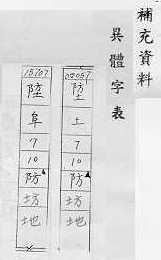 補充資料
異體字表
陞
土
7
10
防
坊
地
15707
陸
阜
7
10
防
坊
地